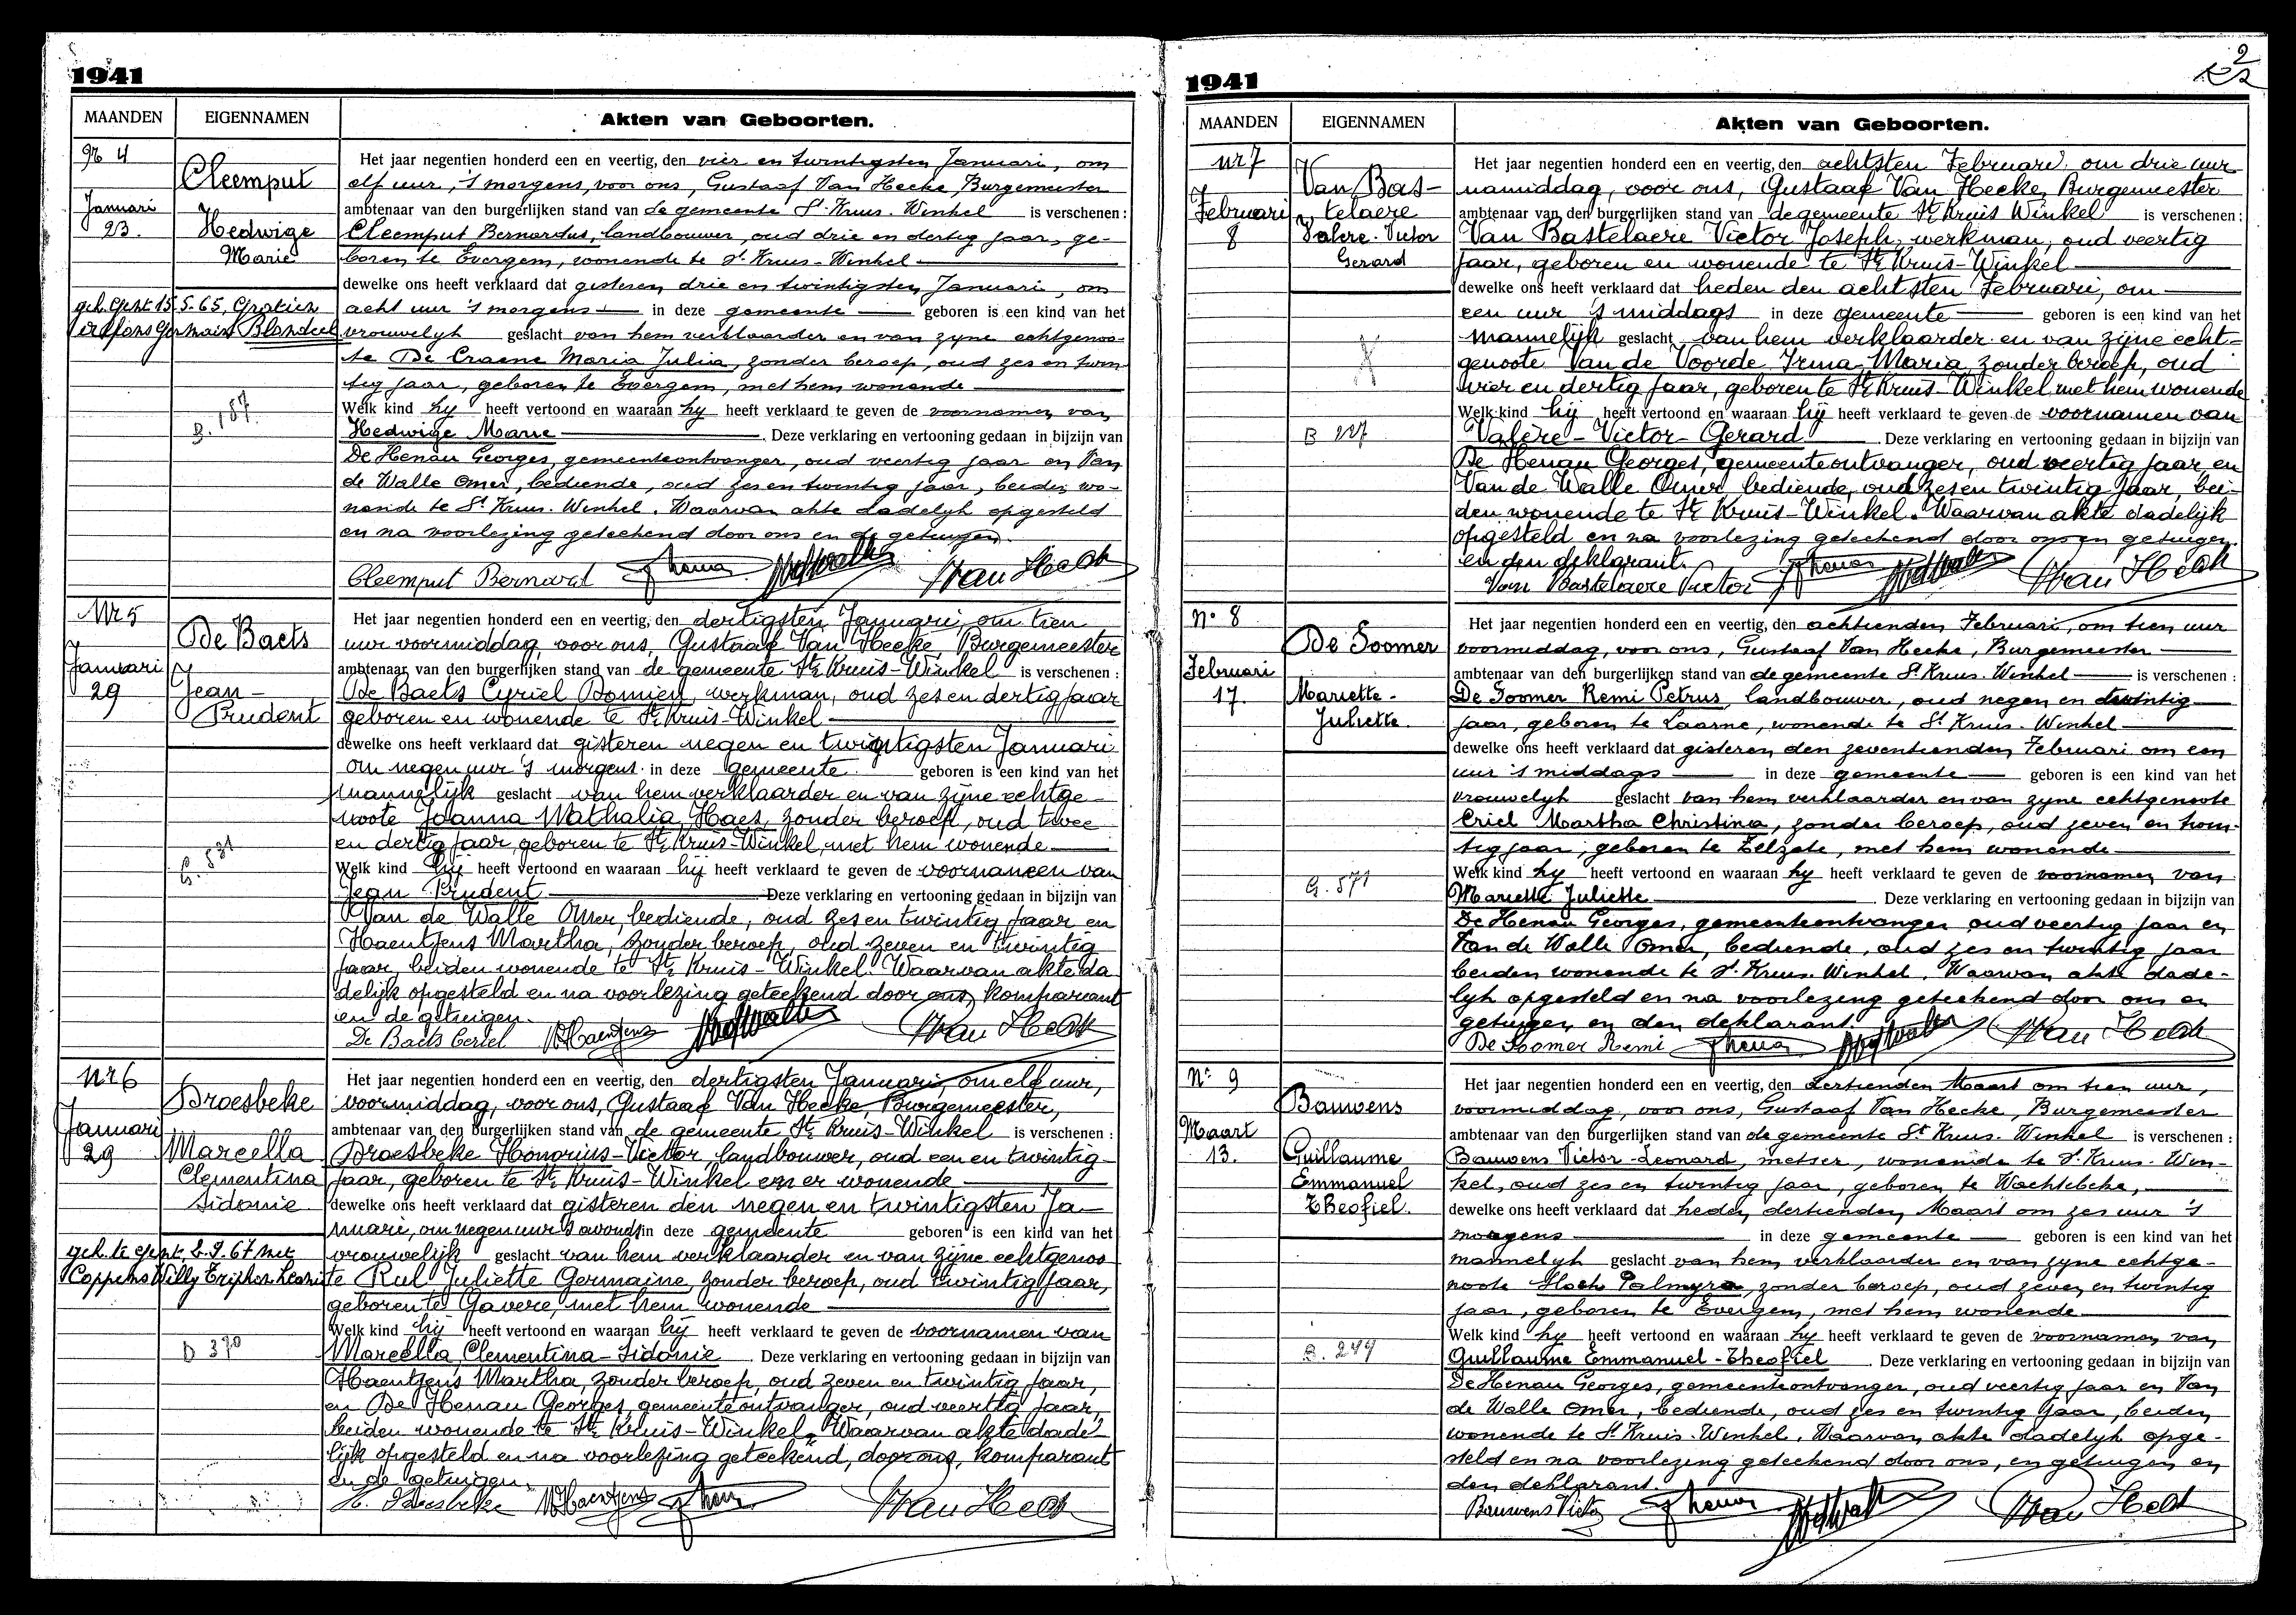 1941
MAANDEN
EIGENNAMEN
Akten van Geboorten.
Nr 4
Cleemput
Januari
23.
Hedwige
Marie
geh. Gent 15.5.65,
Blondeel
B. 187
Het jaar negentien honderd een en veertig, den vier en twintigsten Januari, om
elf uur, 's morgens, voor ons, Gustaaf Van Hecke, Burgemeester
ambtenaar van den burgerlijken stand van de gemeente St. Kruis. Winkel is verschenen :
Cleemput Bernardus, landbouwer, oud drie en dertig jaar, ge-
boren te Evergem, wonende te St. Kruis-Winkel
dewelke ons heeft verklaard dat gisteren drie en twintigsten Januari, om
acht uur 's morgens in deze gemeente geboren is een kind van het
vrouwelyk geslacht van hem verklaarder en van zyne echtgenoo-
te De Craene Maria Julia, zonder beroep, oud zes en twin
tig jaar, geboren te Evergem, met hem wonende
Welk kind hy heeft vertoond en waaraan hy heeft verklaard te geven de voornamen van
Hedwige Marie . Deze verklaring en vertooning gedaan in bijzijn van
De Henau Georges, gemeenteontvanger, oud veertig jaar en Van
de Walle Omer, bediende, oud zes en twintig jaar, beiden wo-
nende te St. Kruis. Winkel. Waarvan akte dadelyk opgesteld
en na voorlezing geteekend door ons en de getuigen.
Cleemput Bernard Van Hecke
Nr 5
De Baets
Januari
29
Jean-
Prudent
G. 531
Het jaar negentien honderd een en veertig, den dertigsten Januari, om tien
uur voormiddag, voor ons, Gustaaf Van Hecke, Burgemeester
ambtenaar van den burgerlijken stand van de gemeente St. Kruis-Winkel is verschenen :
De Baets Cyriel Domien, werkman, oud zes en dertig jaar
geboren en wonende te St. Kruis-Winkel
dewelke ons heeft verklaard dat gisteren negen en twintigsten Januari
om negen uur 's morgens in deze gemeente geboren is een kind van het
mannelijk geslacht van hem verklaarder en van zijne echtge-
noote Joanna Nathalia Haes, zonder beroep, oud twee
en dertig jaar, geboren te St. Kruis-Winkel, met hem wonende
Welk kind hij heeft vertoond en waaraan hij heeft verklaard te geven de voornamen van
Jean Prudent Deze verklaring en vertooning gedaan in bijzijn van
Van de Walle Omer, bediende, oud zes en twintig jaar en
Haentjens Martha, zonder beroep, oud zeven en twintig
jaar, beiden wonende te St. Kruis-Winkel. Waarvan akte da
delijk opgesteld en na voorlezing geteekend door ons, komparant
en de getuigen.
De Baets Ceriel M Haentjens Van Hecke
Nr 6
Broesbeke
Januari
29
Marcella
Clementina
Sidonie
geh. te Gent 2.9.67 met
Coppens Willy
D 370
Het jaar negentien honderd een en veertig, den dertigsten Januari, om elf uur,
voormiddag, voor ons, Gustaaf Van Hecke, Burgemeester,
ambtenaar van den burgerlijken stand van de gemeente St. Kruis-Winkel is verschenen :
Broesbeke Honorius-Victor, landbouwer, oud een en twintig
jaar, geboren te St. Kruis-Winkel en er wonende
dewelke ons heeft verklaard dat gisteren den negen en twintigsten Ja-
nuari, om negen uur 's avonds in deze gemeente geboren is een kind van het
vrouwelijk geslacht van hem verklaarder en van zijne echtgenoo
te Rul Juliette Germaine, zonder beroep, oud twintig jaar,
geboren te Gavere, met hem wonende
Welk kind hij heeft vertoond en waaraan hij heeft verklaard te geven de voornamen van
Marcella Clementina-Sidonie . Deze verklaring en vertooning gedaan in bijzijn van
Haentjens Martha, zonder beroep, oud zeven en twintig jaar,
en De Henau Georges, gemeenteontvanger, oud veertig jaar,
beiden wonende te St. Kruis-Winkel. Waarvan akte dade-
lijk opgesteld en na voorlezing geteekend, door ons, komparant
en de getuigen.
M Haentjens Van Hecke
1941
2
MAANDEN
EIGENNAMEN
Akten van Geboorten.
nr 7
Van Bas-
telaere
Februari
8
Valere-Victor
Gerard
B 227
Het jaar negentien honderd een en veertig, den achtsten Februari om drie uur
namiddag, voor ons, Gustaaf Van Hecke, Burgemeester
ambtenaar van den burgerlijken stand van de gemeente St. Kruis Winkel is verschenen :
Van Bastelaere Victor Joseph, werkman, oud veertig
jaar, geboren en wonende te St. Kruis-Winkel
dewelke ons heeft verklaard dat heden den achtsten Februari, om
een uur 's middags in deze gemeente geboren is een kind van het
mannelijk geslacht van hem verklaarder en van zijne echt-
genoote Van de Voorde Irma-Maria, zonder beroep, oud
vier en dertig jaar, geboren te St. Kruis-Winkel met hem wonende
Welk kind hij heeft vertoond en waaraan hij heeft verklaard te geven de voornamen van
Valère-Victor-Gerard . Deze verklaring en vertooning gedaan in bijzijn van
De Henau Georges, gemeenteontvanger, oud veertig jaar en
Van de Walle Omer, bediende, oud zes en twintig jaar, bei-
den wonende te St. Kruis-Winkel. Waarvan akte dadelijk
opgesteld en na voorlezing geteekend door ons en getuigen
en den deklarant.
Van Bastelaere Victor Van Hecke
N° 8
De Soomer
Februari
17.
Mariette-
Juliette.
G. 571
Het jaar negentien honderd een en veertig, den achtienden Februari, om tien uur
voormiddag, voor ons, Gustaaf Van Hecke, Burgemeester
ambtenaar van den burgerlijken stand van de gemeente St. Kruis. Winkel is verschenen :
De Soomer Remi Petrus, landbouwer, oud negen en twintig
jaar, geboren te Laarne, wonende te St. Kruis. Winkel
dewelke ons heeft verklaard dat gisteren den zeventienden Februari om een
uur 's middags in deze gemeente geboren is een kind van het
vrouwelyk geslacht van hem verklaarder en van zyne echtgenoote
Criel Martha Christina, zonder beroep, oud zeven en twin-
tig jaar, geboren te Zelzate, met hem wonende
Welk kind hy heeft vertoond en waaraan hy heeft verklaard te geven de voornamen van
Mariette Juliette . Deze verklaring en vertooning gedaan in bijzijn van
De Henau Georges, gemeenteontvanger oud veertig jaar en
Van de Walle Omer, bediende, oud zes en twintig jaar
beiden wonende te St. Kruis. Winkel. Waarvan akte dade-
lyk opgesteld en na voorlezing geteekend door ons en
getuigen en den deklarant.
De Soomer Remi Van Hecke
N° 9
Bauwens
Maart
13.
Guillaume
Emmanuel
Theofiel.
B. 249
Het jaar negentien honderd een en veertig, den dertienden Maart om tien uur,
voormiddag, voor ons, Gustaaf Van Hecke, Burgemeester
ambtenaar van den burgerlijken stand van de gemeente St. Kruis. Winkel is verschenen :
Bauwens Victor-Leonard, metser, wonende te St. Kruis-Win-
kel, oud zes en twintig jaar, geboren te Wachtebeke,
dewelke ons heeft verklaard dat heden dertienden Maart om zes uur 's
morgens in deze gemeente geboren is een kind van het
mannelyk geslacht van hem verklaarder en van zyne echtge-
noote Stoch Palmyra, zonder beroep, oud zeven en twintig
jaar, geboren te Evergem, met hem wonende
Welk kind hy heeft vertoond en waaraan hy heeft verklaard te geven de voornamen van
Guillaume Emmanuel-Theofiel . Deze verklaring en vertooning gedaan in bijzijn van
De Henau Georges, gemeenteontvanger, oud veertig jaar en Van
de Walle Omer, bediende, oud zes en twintig jaar, beiden
wonende te St. Kruis-Winkel. Waarvan akte dadelyk opge-
steld en na voorlezing geteekend door ons, en getuigen en
den deklarant.
Bauwens Victor Van Hecke